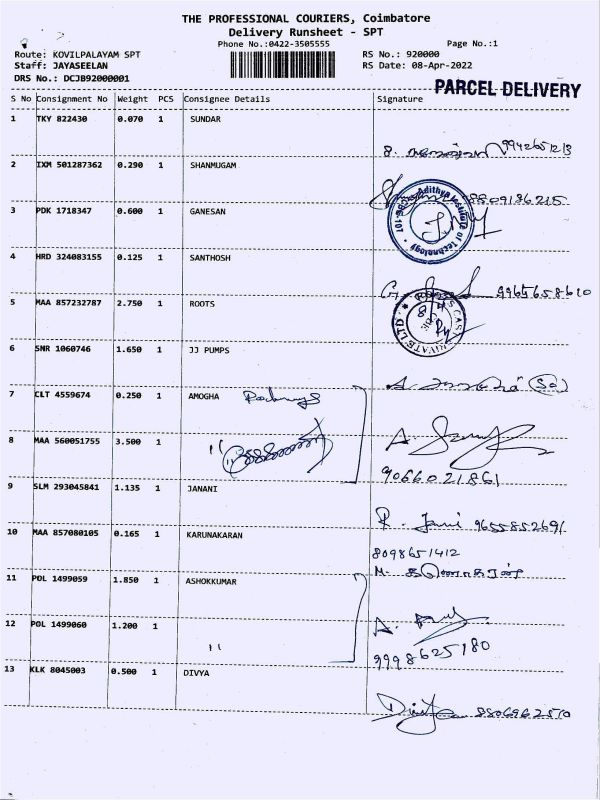 THE PROFESSIONAL COURIERS, Coimbatore
Delivery Runsheet - SPT
Phone No.:0422-3505555 Page No.:1
Route: KOVILPALAYAM SPT RS No.: 920000
Staff: JAYASEELAN RS Date: 08-Apr-2022
DRS No.: DCJB92000001
PARCEL DELIVERY
S No Consignment No Weight PCS Consignee Details Signature
1 TKY 822430 0.070 1 SUNDAR
9942651213
2 IXM 501287362 0.290 1 SHANMUGAM
8809136215
3 PDK 1718347 0.600 1 GANESAN
Adithya Institute of Technology
4 HRD 324083155 0.125 1 SANTHOSH
9965658610
5 MAA 857232787 2.750 1 ROOTS
6 SNR 1060746 1.650 1 JJ PUMPS
7 CLT 4559674 0.250 1 AMOGHA
8 MAA 560051755 3.500 1 "
9066021861
9 SLM 293045841 1.135 1 JANANI
R. Jani 9655852691
10 MAA 857080105 0.165 1 KARUNAKARAN
8098651412
11 POL 1499059 1.850 1 ASHOKKUMAR
12 POL 1499060 1.200 1 "
9998625180
13 KLK 8045003 0.500 1 DIVYA
Divya 8806962570